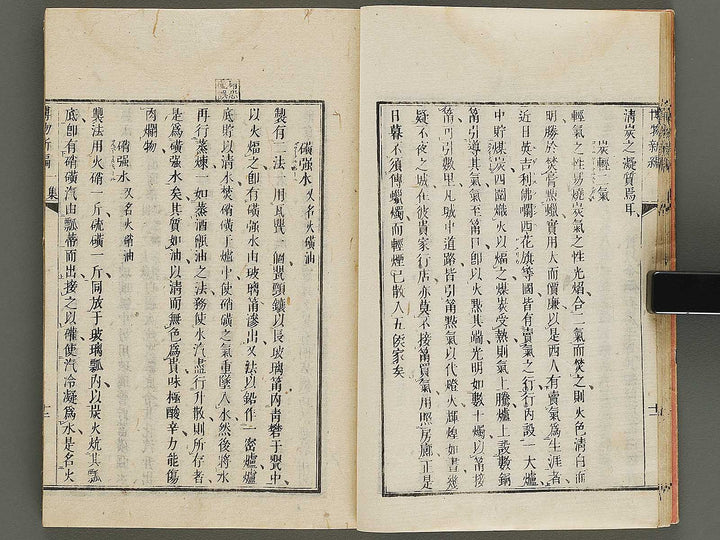 清炭之凝質焉耳
炭輕二氣
輕氣之性易燒炭氣之性光焰合二氣而焚之則火色清白而
明勝於焚膏熱蠟實用大而價廉以是西人有賣氣爲生涯者
近日英吉利佛囒西花旗等國皆有賣氣之行行內設一大爐
中貯煤炭四圍熾火以煏之煤炭受熱則氣上騰爐上設數銅
筩引導其氣氣至筩口卽以火㸃其端光明如數十燭以筩接
筩可引數里凡城中道路皆引筩㸃氣以代燈火輝煌如晝幾
疑不夜之城在彼貴家行店亦莫不接筩買氣用照房廊正是
日暮不須傳蠟燭而輕煙已散入五侯家矣
博物新編
十二
磺强水又名火磺油
製有二法一用瓦甖一個甖頸鑲以長玻璃筩內靑礬于甖中
以火煏之卽有磺强水由玻璃筩滲出又法以鉛作一密爐爐
底貯以清水焚硝磺于爐中使硝磺之氣重墜入水然後將水
再行蒸煉一如蒸酒甑油之法務使水汽盡行升散則所存者
是爲磺强水矣其質如油以清而無色爲貴味極酸辛力能傷
肉爛物
硝强水又名火硝油
製法用火硝一斤硫磺一斤同放于玻璃瓢內以炭火炕其瓢
底卽有硝磺汽由瓢蒂而出接之以礶使汽冷凝爲水是名火
博物新編
集